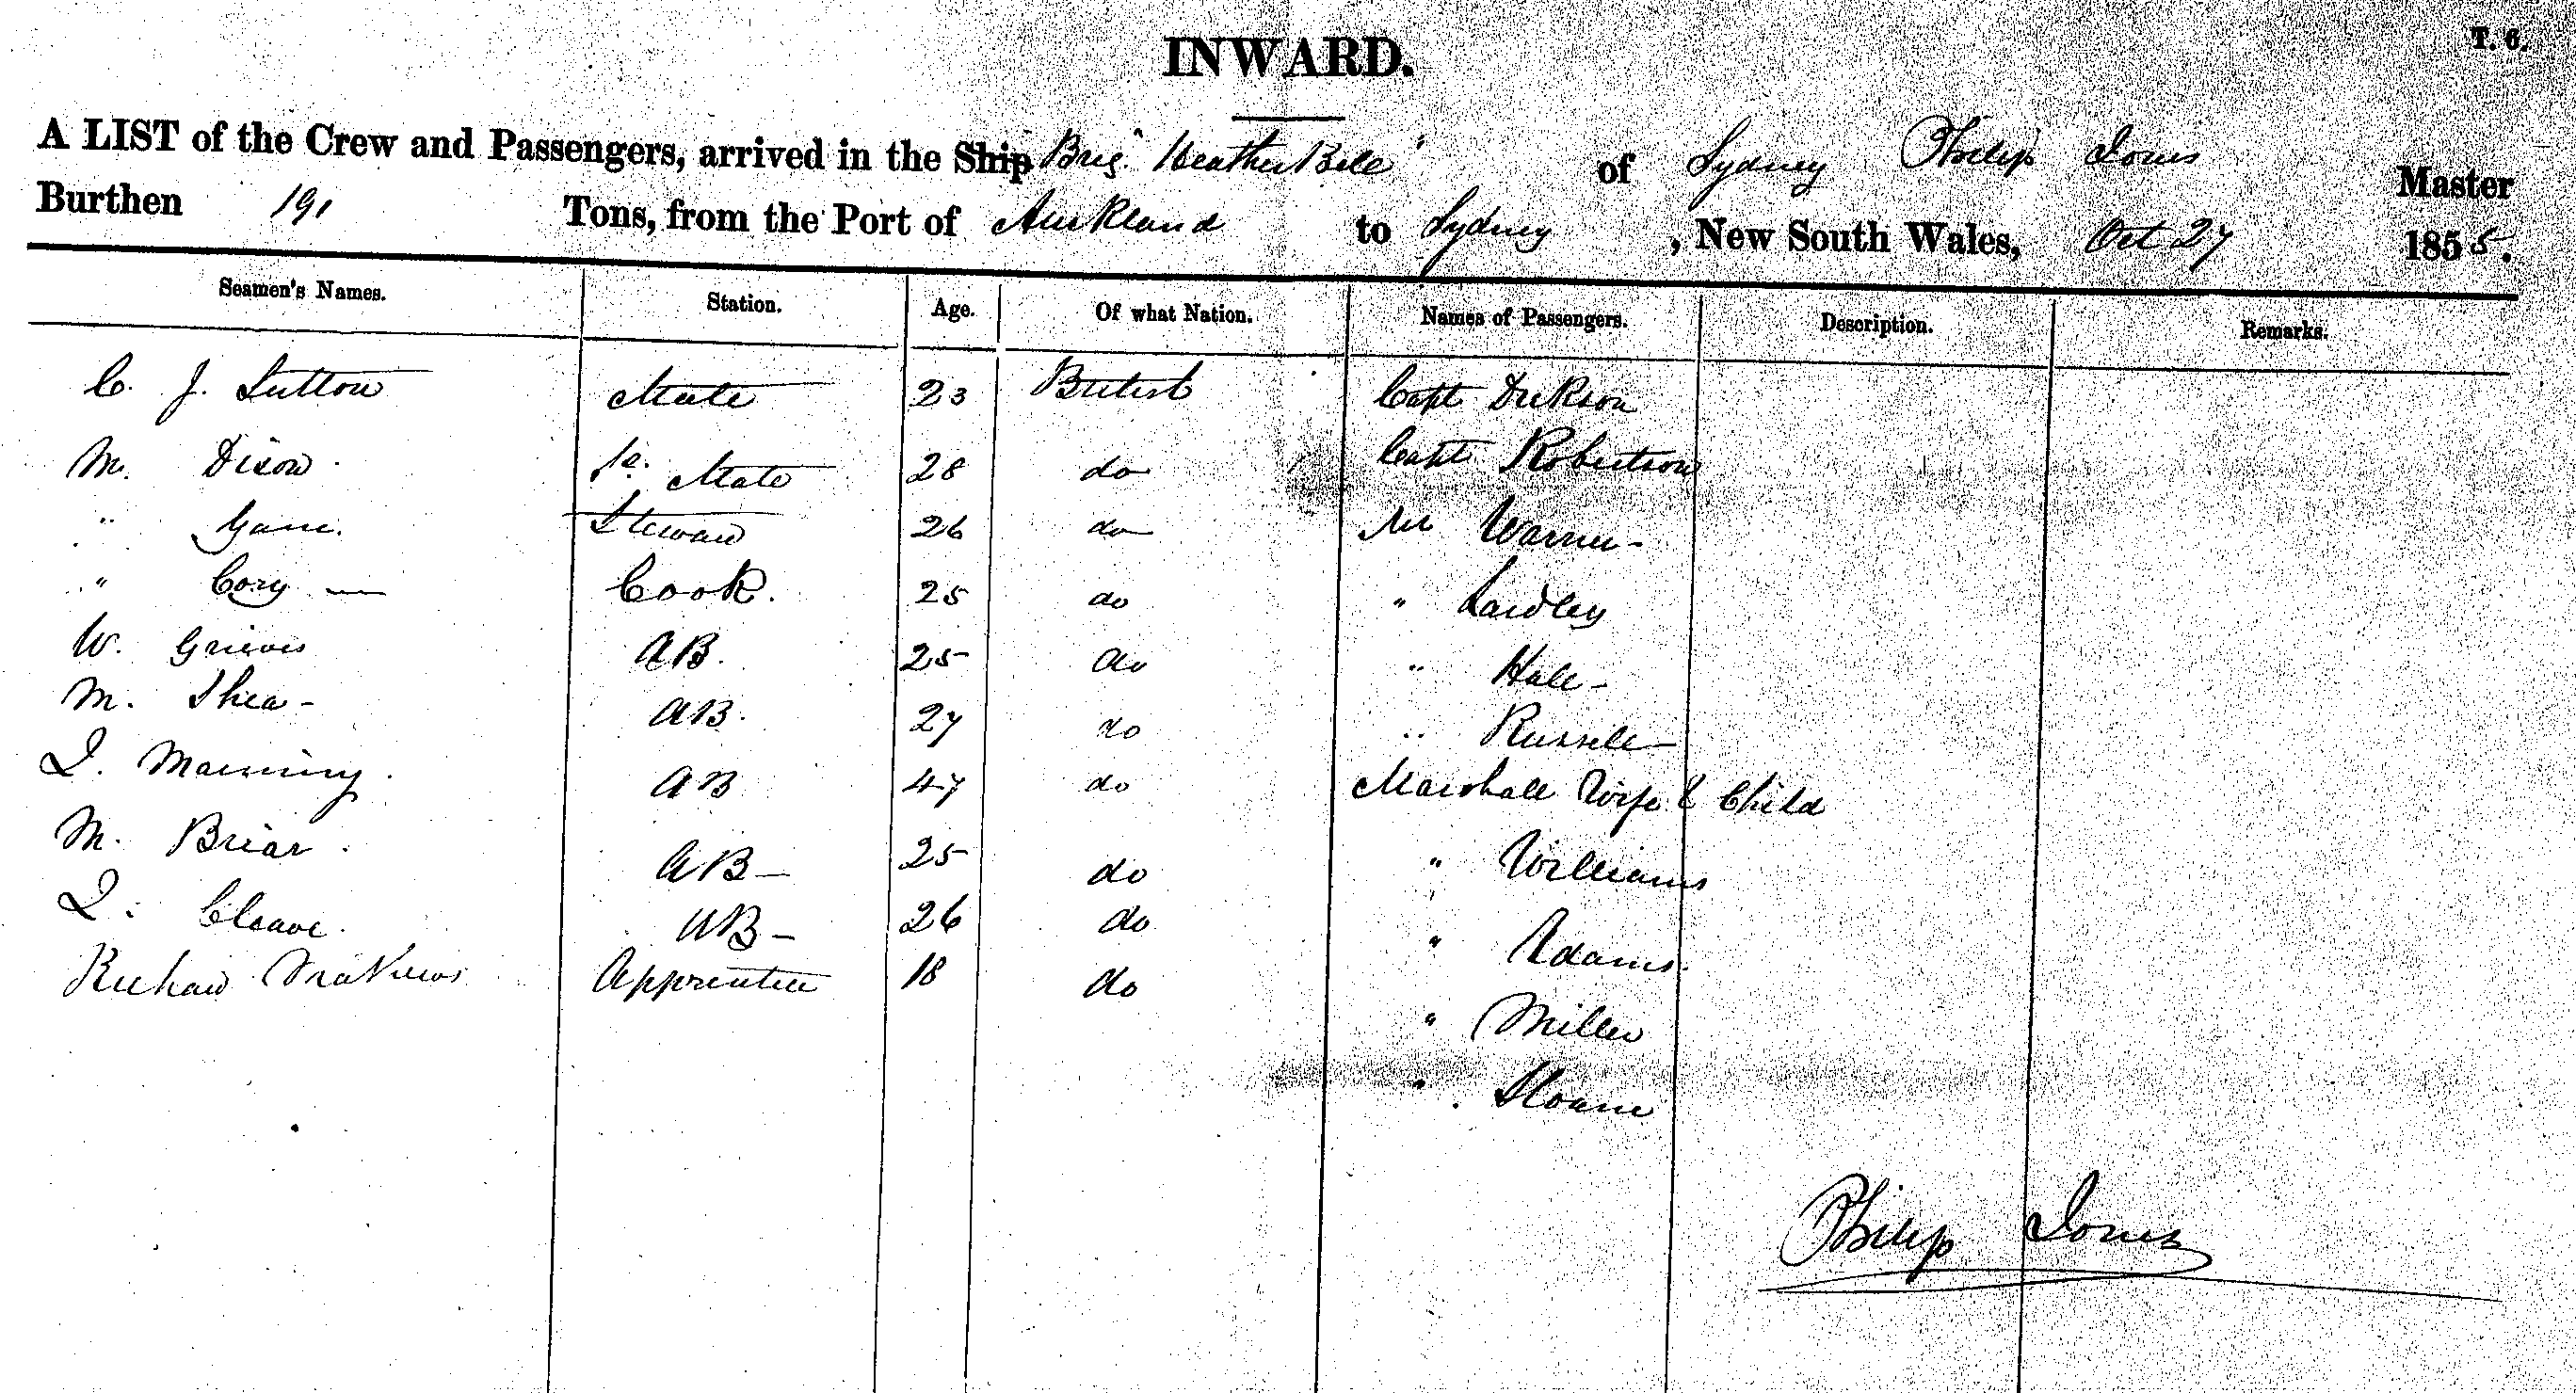 INWARD.
T. 6.
A LIST of the Crew and Passengers, arrived in the Ship Brig "Heather Bell" of Sydney Philip Jones Master
Burthen 191 Tons, from the Port of Auckland to Sydney, New South Wales, Oct 27 1855.
Seamen's Names. Station. Age. Of what Nation. Names of Passengers. Description. Remarks.
C. J. Sutton Mate 23 British Capt Dickson
M. Dixon Mate 28 do Capt Robertson
" Steward 26 do Mr Warner
" Cory Cook. 25 do "
W. Grieves AB. 25 do " Hall
M. Shea AB. 27 do " Russell
J. Manning AB 47 do Marshall Wife & Child
M. Briar AB 25 do " Williams
J. Cleave AB 26 do " Adams
Richard Mathews Apprentice 18 do " Miller
" Sloane
Philip Jones